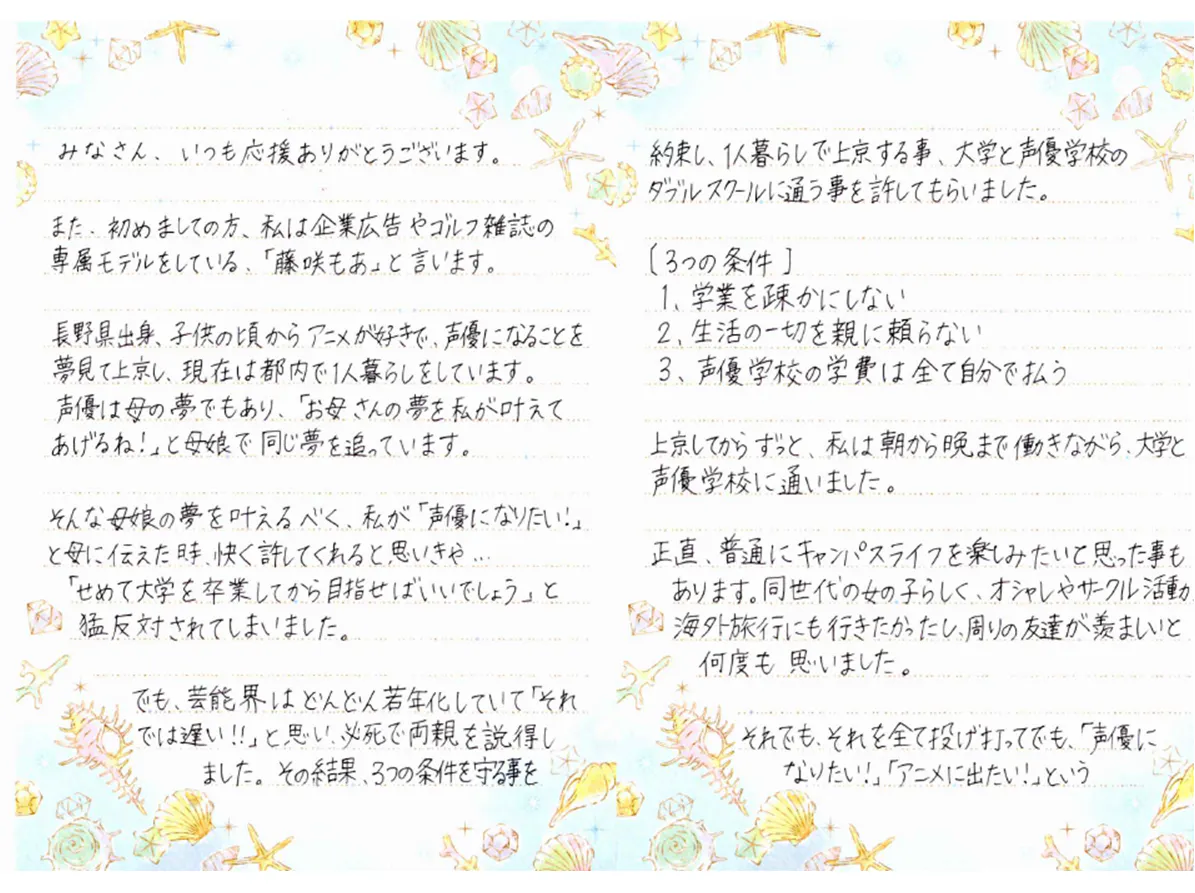 みなさん、いつも応援ありがとうございます。
また、初めましての方、私は企業広告やゴルフ雑誌の
専属モデルをしている、「藤咲もあ」と言います。
長野県出身、子供の頃からアニメが好きで、声優になることを
夢見て上京し、現在は都内で1人暮らしをしています。
声優は母の夢でもあり、「お母さんの夢を私が叶えて
あげるね!」と母娘で同じ夢を追っています。
そんな母娘の夢を叶えるべく、私が「声優になりたい!」
と母に伝えた時、快く許してくれると思いきや…
「せめて大学を卒業してから目指せばいいでしょう」と
猛反対されてしまいました。
でも、芸能界はどんどん若年化していて「それ
では遅い!!」と思い、必死で両親を説得し
ました。その結果、3つの条件を守る事を
約束し、1人暮らしで上京する事、大学と声優学校の
ダブルスクールに通う事を許してもらいました。
[3つの条件]
1、学業を疎かにしない
2、生活の一切を親に頼らない
3、声優学校の学費は全て自分で払う
上京してからずっと、私は朝から晩まで働きながら、大学と
声優学校に通いました。
正直、普通にキャンパスライフを楽しみたいと思った事も
あります。同世代の女の子らしく、オシャレやサークル活動
海外旅行にも行きたかったし、周りの友達が羨ましいと
何度も思いました。
それでも、それを全て投げ打ってでも、「声優に
なりたい!」「アニメに出たい!」という